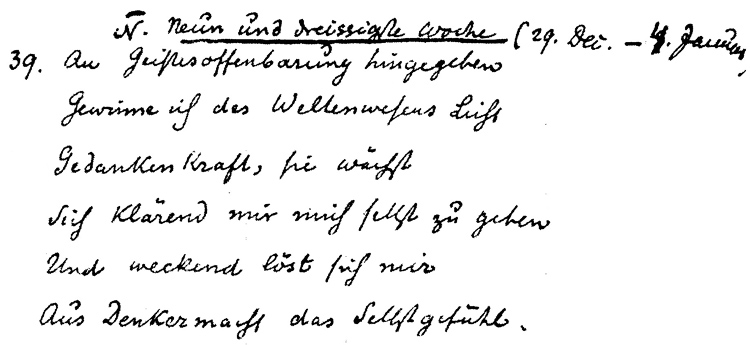 N̄. Neun und dreissigste Woche (29. Dez. – 4. Januar)
39. An Geistesoffenbarung hingegeben
Gewinne ich des Weltenwesens Licht
Gedankenkraft, sie wächst
Sich klärend mir mich selbst zu geben
Und weckend löst sich mir
Aus Denkermacht das Selbstgefühl.